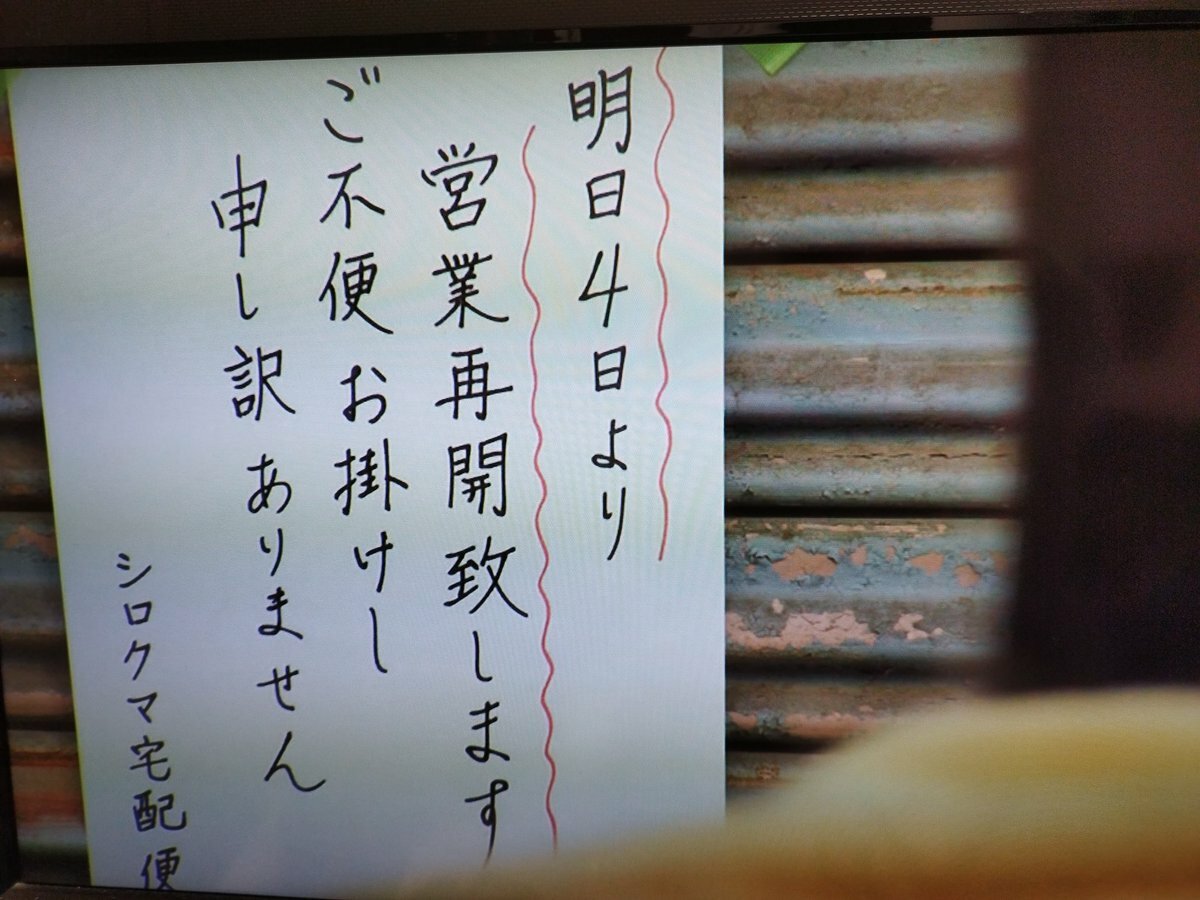 明日4日より
営業再開致します
ご不便お掛けし
申し訳ありません
シロクマ宅配便